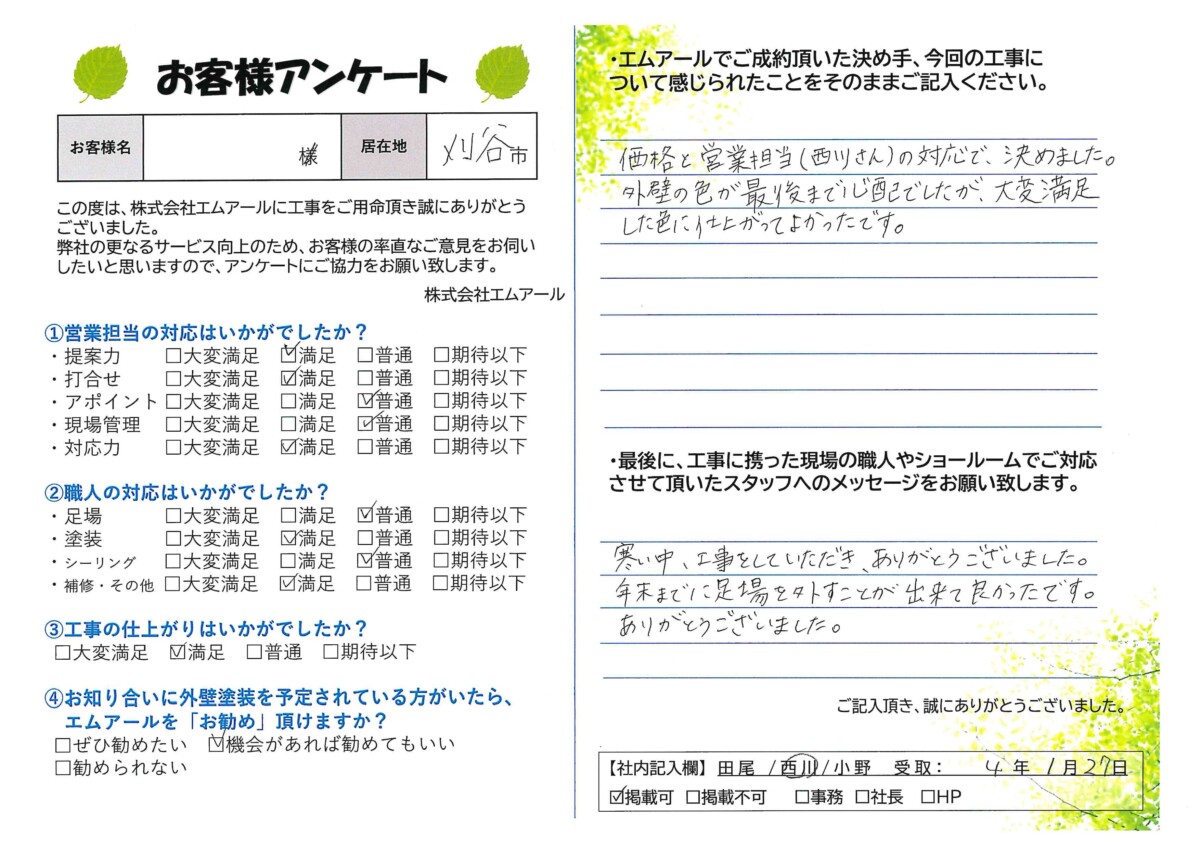 お客様アンケート
お客様名 様 居在地 刈谷市
この度は、株式会社エムアールに工事をご用命頂き誠にありがとう
ございました。
弊社の更なるサービス向上のため、お客様の率直なご意見をお伺い
したいと思いますので、アンケートにご協力をお願い致します。
株式会社エムアール
①営業担当の対応はいかがでしたか？
・提案力 □大変満足 ☑満足 □普通 □期待以下
・打合せ □大変満足 ☑満足 □普通 □期待以下
・アポイント □大変満足 □満足 ☑普通 □期待以下
・現場管理 □大変満足 □満足 ☑普通 □期待以下
・対応力 □大変満足 ☑満足 □普通 □期待以下
②職人の対応はいかがでしたか？
・足場 □大変満足 □満足 ☑普通 □期待以下
・塗装 □大変満足 ☑満足 □普通 □期待以下
・シーリング □大変満足 □満足 ☑普通 □期待以下
・補修・その他 □大変満足 ☑満足 □普通 □期待以下
③工事の仕上がりはいかがでしたか？
□大変満足 ☑満足 □普通 □期待以下
④お知り合いに外壁塗装を予定されている方がいたら、
エムアールを「お勧め」頂けますか？
□ぜひ勧めたい ☑機会があれば勧めてもいい
□勧められない
・エムアールでご成約頂いた決め手、今回の工事に
ついて感じられたことをそのままご記入ください。
価格と営業担当(西川さん)の対応で、決めました。
外壁の色が最後まで心配でしたが、大変満足
した色に仕上がってよかったです。
・最後に、工事に携った現場の職人やショールームでご対応
させて頂いたスタッフへのメッセージをお願い致します。
寒い中、工事をしていただき、ありがとうございました。
年末までに足場を外すことが出来て良かったです。
ありがとうございました。
ご記入頂き、誠にありがとうございました。
【社内記入欄】 田尾 /西川/小野 受取： 4年 1月27日
☑掲載可 □掲載不可 □事務 □社長 □HP